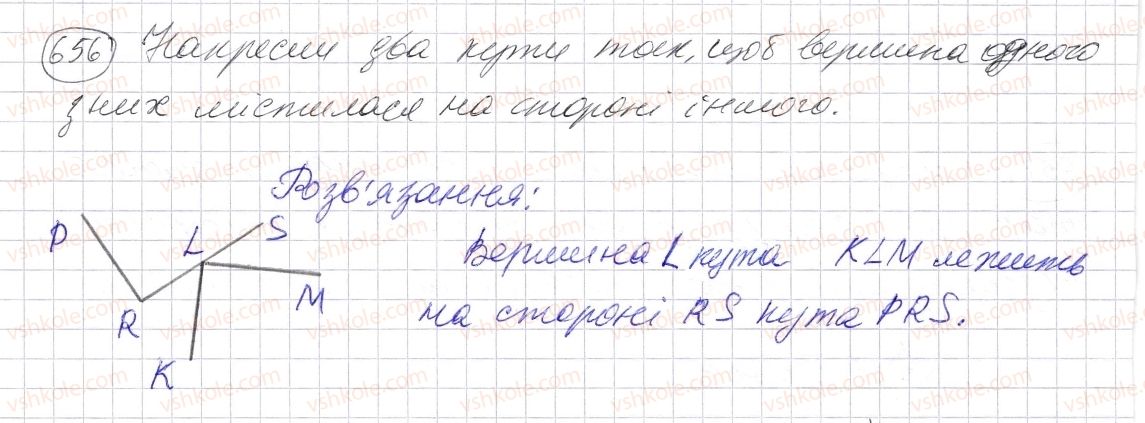 656 Накресли два кути так, щоб вершина одного
з них містилася на стороні іншого.
Розв'язання:
P
L
S
Вершина L кута KLM лежить
M
R
на стороні RS кута PRS.
K